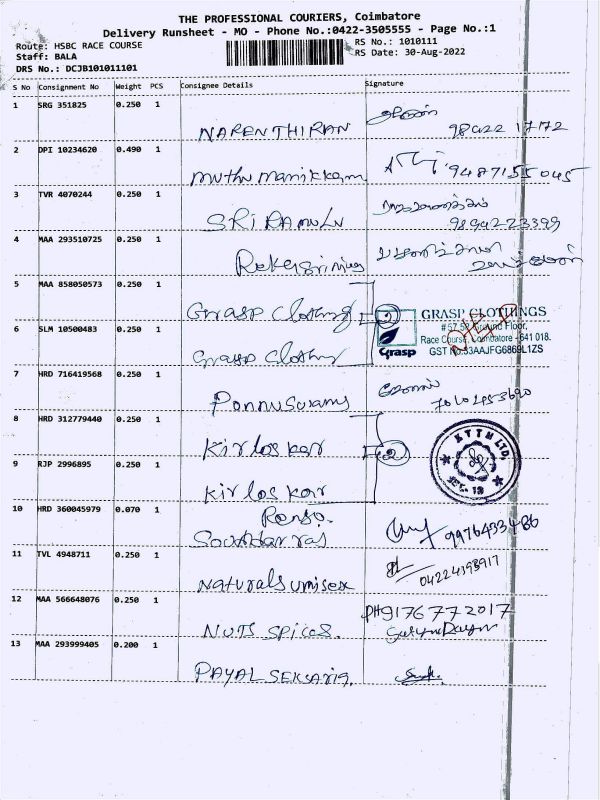 THE PROFESSIONAL COURIERS, Coimbatore
Delivery Runsheet - MO - Phone No.:0422-3505555 - Page No.:1
Route: HSBC RACE COURSE
RS No.: 1010111
Staff: BALA
RS Date: 30-Aug-2022
DRS No.: DCJB101011101
S No Consignment No Weight PCS Consignee Details Signature
1 SRG 351825 0.250 1
NARENTHIRAN
2 DPI 10234620 0.490 1
Muthu manikkam 9487155045
3 TVR 4070244 0.250 1
SRI RAMULU
4 MAA 293510725 0.250 1
5 MAA 858050573 0.250 1
Grasp Clothing 2 GRASP CLOTHINGS
6 SLM 10500483 0.250 1
Race Course, Coimbatore - 641 018.
Grasp Clothing Grasp GST No:33AAJFG6869L1ZS
7 HRD 716419568 0.250 1
Ponnuswamy
8 HRD 312779440 0.250 1
Kirloskar 2
KTTM LTD.
9 RJP 2996895 0.250 1
Kirloskar
10 HRD 360045979 0.070 1
9976433486
11 TVL 4948711 0.250 1
Naturals unisex 04224393917
12 MAA 566648076 0.250 1
PH 9176772017
NUTS SPICES.
13 MAA 293999405 0.200 1
PAYAL SEKSARIA.